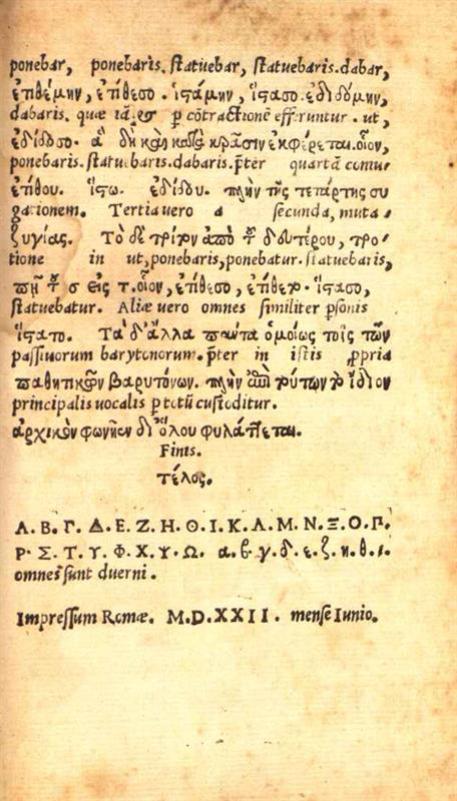 ponebar, ponebaris. statuebar, statuebaris. dabar,
ἐτιθέμην, ἐτίθεσο. ἱστάμην, ἵστασο. ἐδιδόμην,
dabaris. quæ iã. & p cõtractionẽ efferuntur. ut,
ἐδίδοσο. ἃ δὴ καὶ κατὰ κρᾶσιν ἐκφέρεται. οἷον,
ponebaris. statuebaris. dabaris. p̃ter quartã coniu-
ἐτίθου. ἵστω. ἐδίδου. πλὴν τῆς τετάρτης συ
gationem. Tertia uero a secunda, muta-
ζυγίας. Τὸ δὲ τρίτον ἀπὸ τοῦ δευτέρου, τρο-
tione in ut, ponebaris, ponebatur. statuebaris,
πῇ τοῦ σ εἰς τ. οἷον, ἐτίθεσο, ἐτίθετο. ἵστασο,
statuebatur. Aliæ uero omnes similiter p̃sonis
ἵστατο. Τὰ δ' ἄλλα πάντα ὁμοίως τοῖς τῶν
passiuorum barytonorum. p̃ter in istis ꝓpria
παθητικῶν βαρυτόνων. πλὴν ἐπὶ τούτων τὸ ἴδιον
principalis uocalis p totũ custoditur.
ἀρχικὸν φωνῆεν δι' ὅλου φυλάττεται.
Finis.
τέλος.
Α.Β.Γ.Δ.Ε.Ζ.Η.Θ.Ι.Κ.Λ.Μ.Ν.Ξ.Ο.Π.
Ρ.Σ.Τ.Υ.Φ.Χ.Ψ.Ω. α.β.γ.δ.ε.ζ.η.θ.ι.
omnes sunt duerni.
Impressum Romæ. M.D.XXII. mense Iunio.